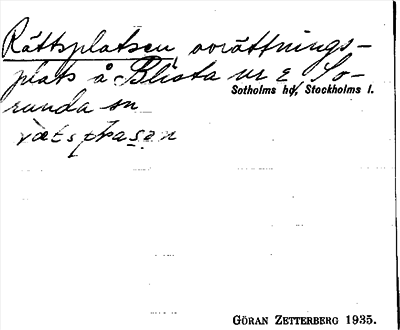 Rättsplatsen, avrättnings-
plats å Blista nr 2, So-
Sotholms hd, Stockholms l.
runda sn
rætspɬasən
GÖRAN ZETTERBERG 1935.